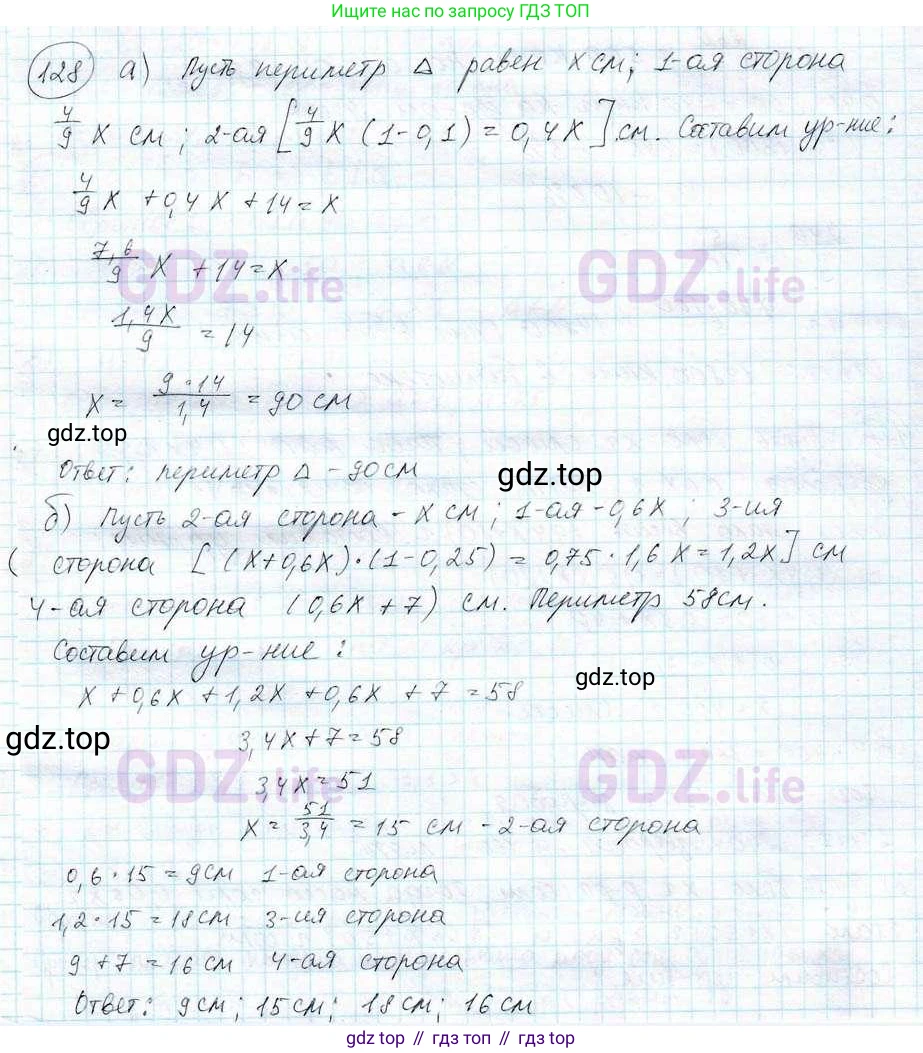 Ищите нас по запросу ГДЗ ТОП
128 а) Пусть периметр Δ равен x см; 1-ая сторона
4/9 x см; 2-ая [4/9 x (1-0,1) = 0,4x] см. Составим ур-ние:
4/9 x + 0,4x + 14 = x
7,6/9 x + 14 = x
GDZ.life GDZ.life
1,4x/9 = 14
x = 9·14/1,4 = 90 см
gdz.top
Ответ: периметр Δ - 90 см
gdz.top
б) Пусть 2-ая сторона - x см; 1-ая - 0,6x; 3-ия
( сторона [(x+0,6x)·(1-0,25) = 0,75·1,6x = 1,2x] см
4-ая сторона (0,6x + 7) см. Периметр 58см.
Составим ур-ние:
gdz.top
x + 0,6x + 1,2x + 0,6x + 7 = 58
gdz.top
3,4x + 7 = 58
GDZ.life GDZ.life
3,4x = 51
x = 51/3,4 = 15 см - 2-ая сторона
0,6·15 = 9см 1-ая сторона
1,2·15 = 18см 3-ия сторона
9 + 7 = 16 см 4-ая сторона
Ответ: 9см; 15см; 18см; 16см
gdz.top // гдз топ // gdz.top // гдз топ // gdz.top